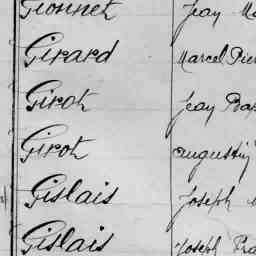 Gionnet Jean
Girard Marcel
Girot Jean
Girot Augustin
Gislais Joseph
Gislais Joseph